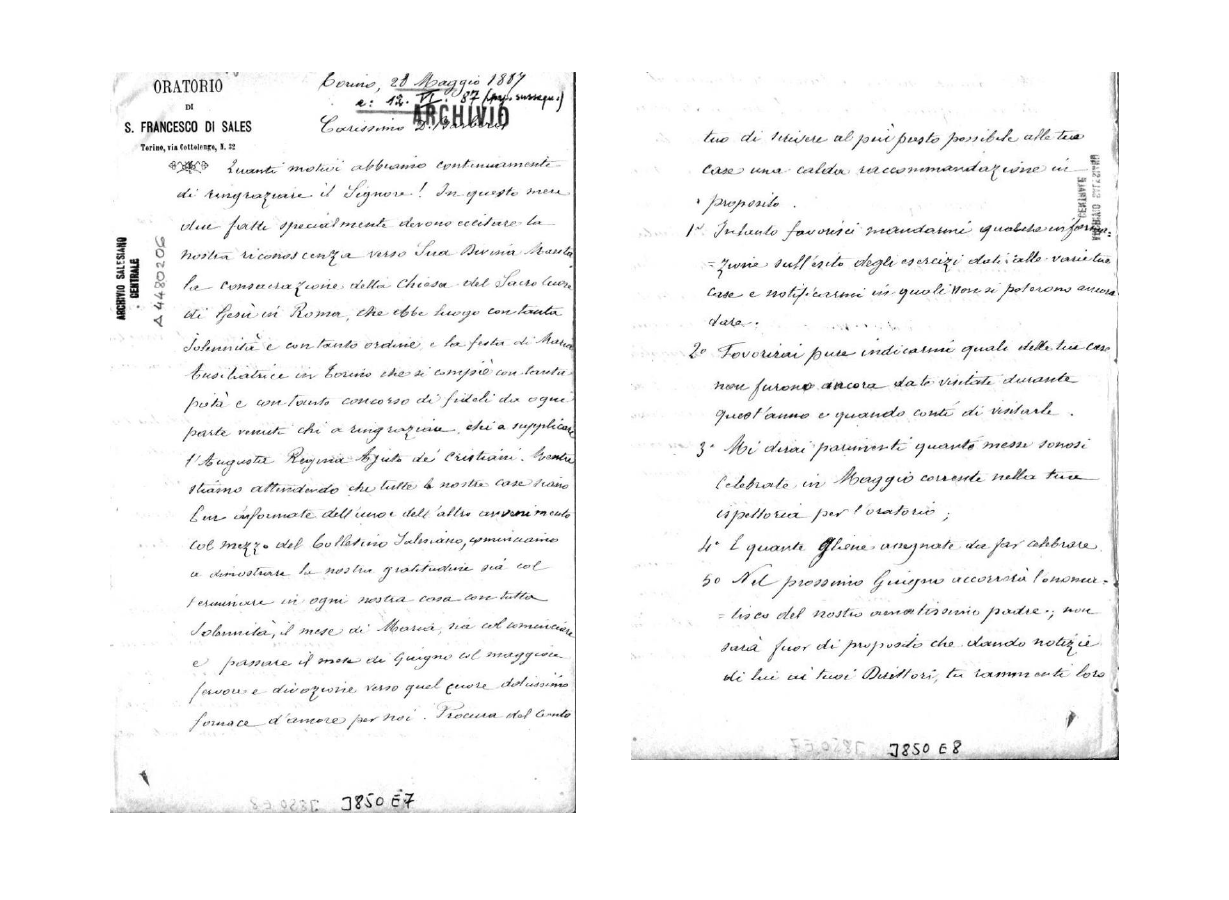 ORATORIO
DI
S. FRANCESCO DI SALES
Torino, via Cottolengo, N. 32
Torino, 28 Maggio 1887
e: 12. VI. 87
ARCHIVIO
Carissimo D.
ARCHIVIO SALESIANO
CENTRALE
A4480206
Quanti motivi abbiamo continuamente
di ringraziare il Signore! In questo mese
due fatti specialmente devono eccitare la
nostra riconoscenza verso Sua Divina Maestà
la consacrazione della Chiesa del Sacro Cuore
di Gesù in Roma, che ebbe luogo con tanta
solennità e con tanto ordine, e la festa di Maria
Ausiliatrice in Torino che si compiè con tanta
pietà e con tanto concorso di fideli da ogni
parte venuti chi a ringraziare, chi a supplicare
l'Augusta Regina Ajuto de' Cristiani. Mentre
stiamo attendendo che tutte le nostre case siano
ben informate dell'uno e dell'altro avvenimento
col mezzo del Bollettino Salesiano, cominciamo
a dimostrare la nostra gratitudine sia col
terminare in ogni nostra casa con tutta
solennità, il mese di Maria, sia col cominciare
e passare il mese di Giugno col maggior
fervore e divozione verso quel cuore dolcissimo
fornace d'amore per noi. Procura dal canto
J850 E7
tuo di scrivere al più presto possibile alle tue
case una calda raccommandazione in
proposito.
1° Intanto favorisci mandarmi qualche informa=
=zione sull'esito degli esercizi dati alle varie tue
case e notificarmi in quali non si poterono ancora
dare.
2° Favorirai pure indicarmi quali delle tue case
non furono ancora da te visitate durante
quest'anno e quando conti di visitarle.
3° Mi dirai parimenti quante messe sonosi
celebrate in Maggio corrente nella tua
ispettoria per l'oratorio;
4° E quante gliene assegnate da far celebrare.
5° Nel prossimo Giugno accorrerà l'onoma=
=stico del nostro amatissimo padre; non
sarà fuor di proposito che dando notizie
di lui ai tuoi Direttori, tu rammenti loro
J850 E8